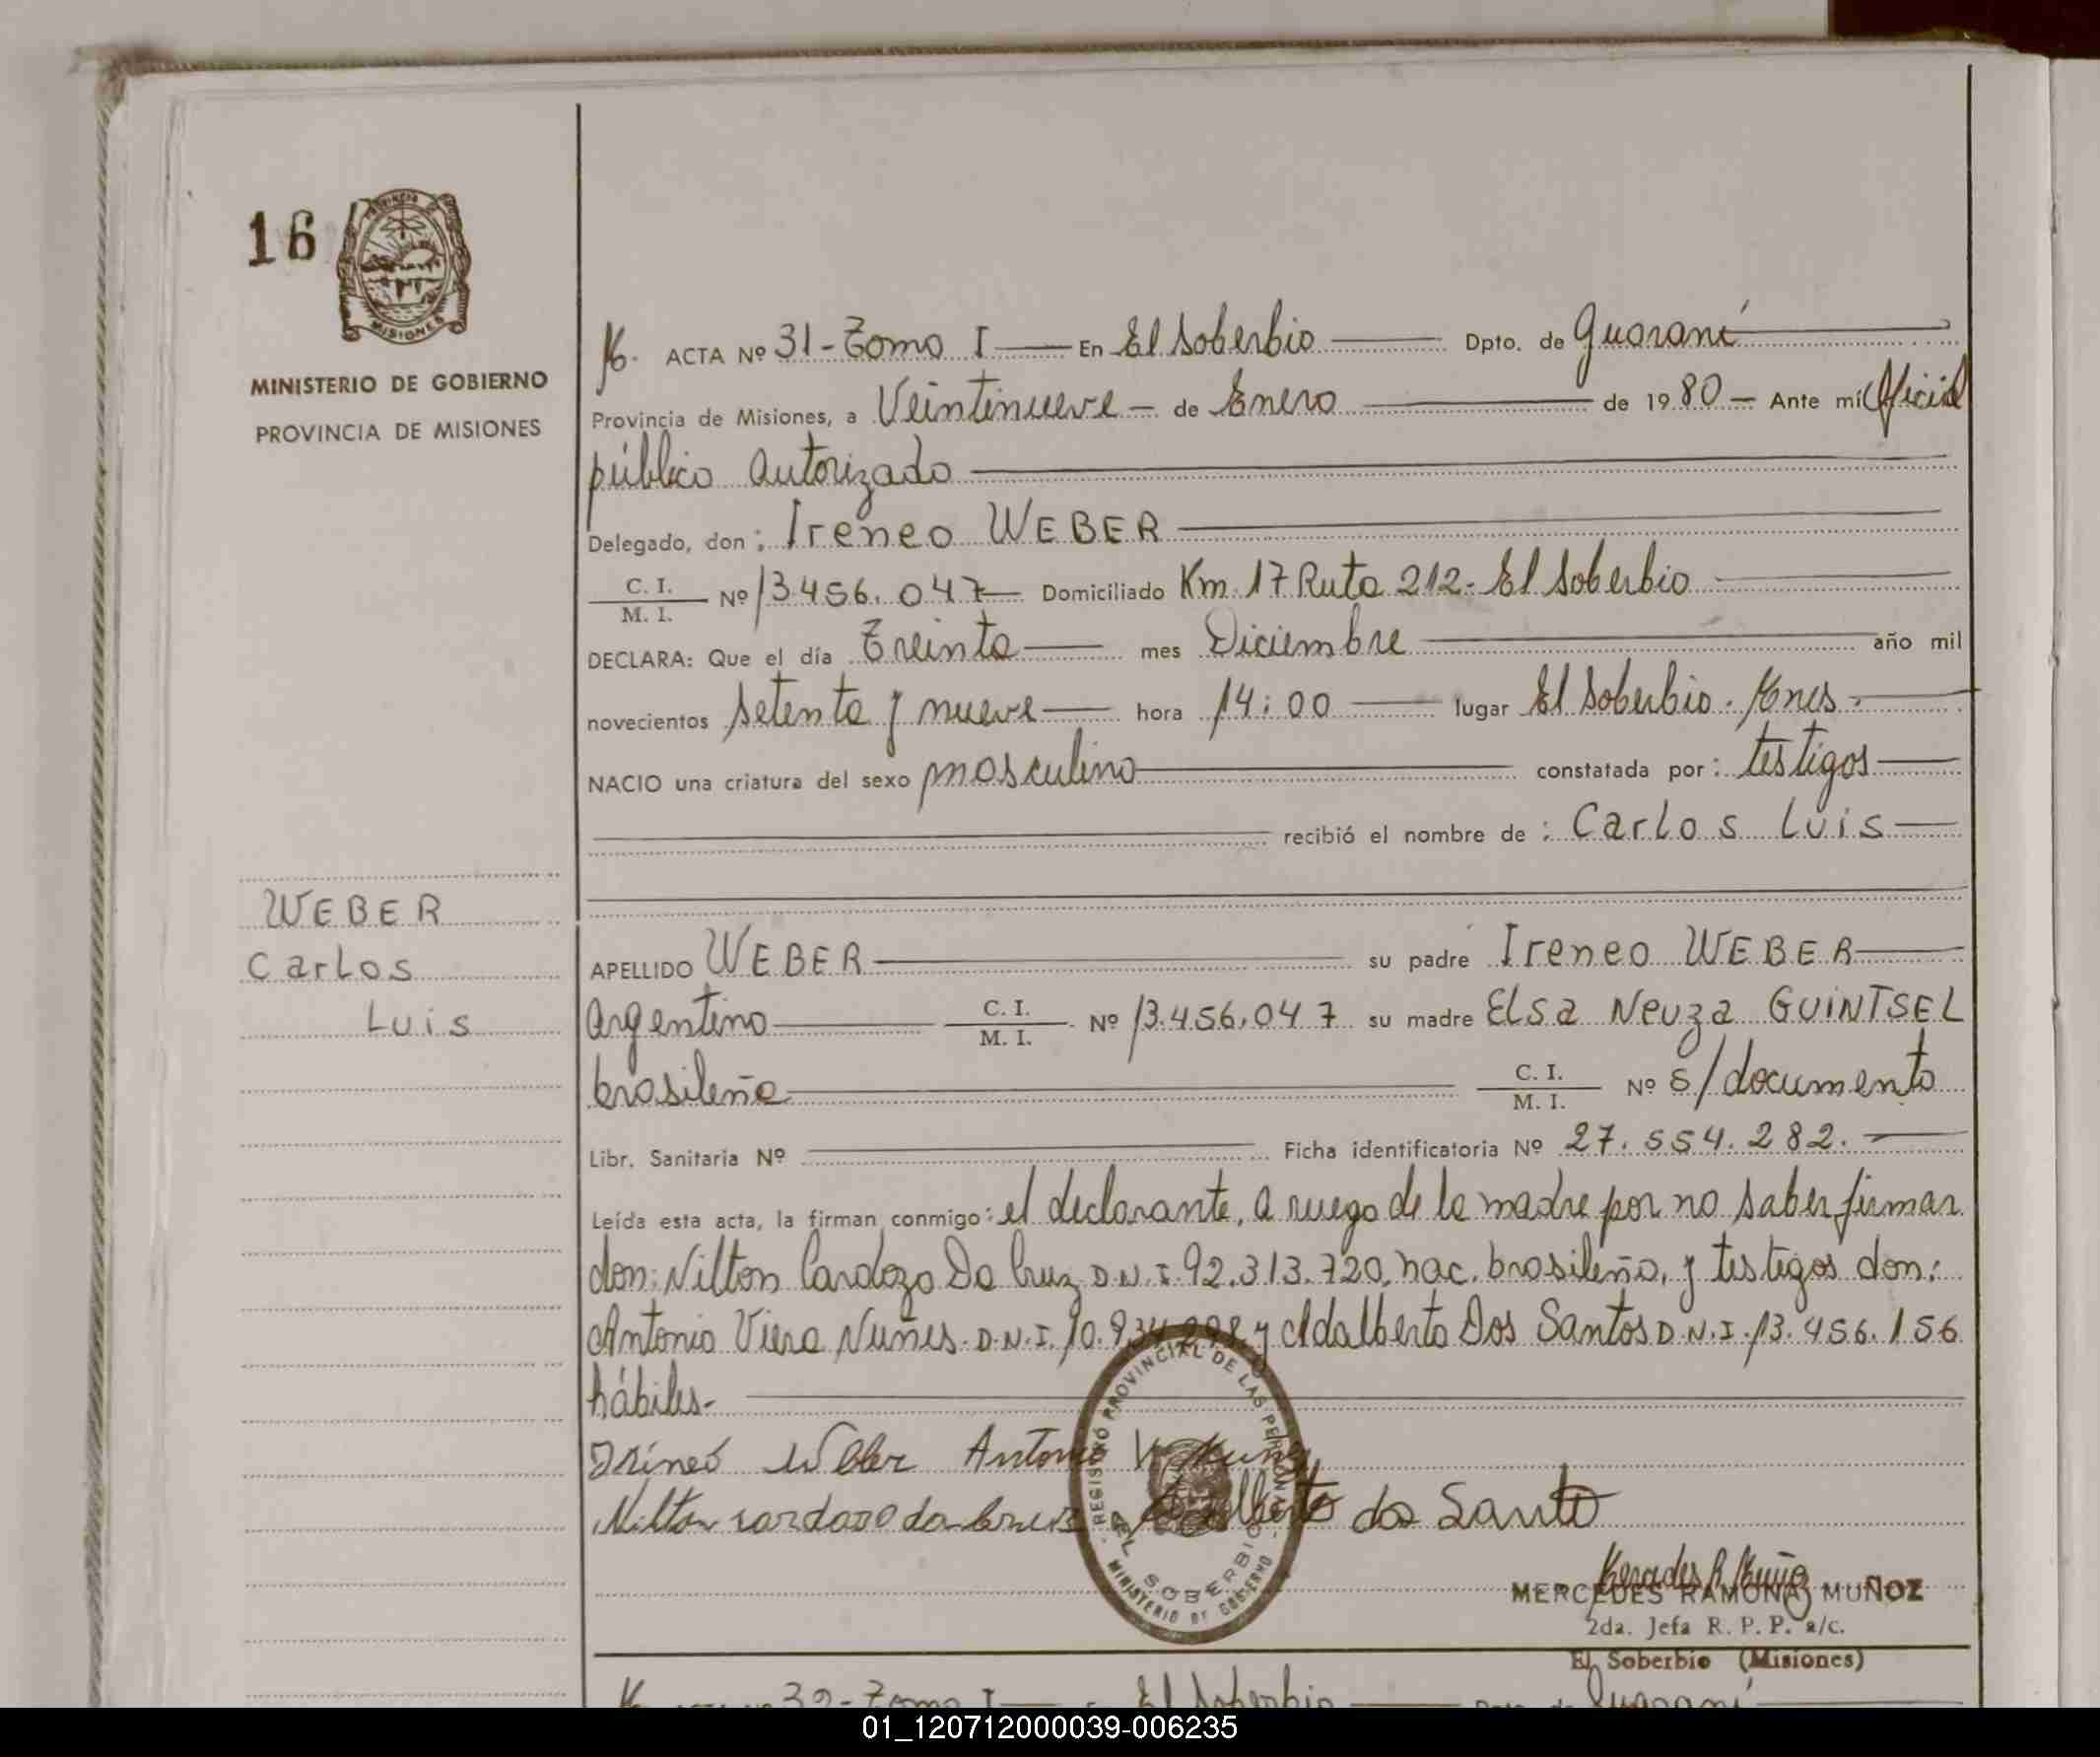 16
PROVINCIA DE
MISIONES
MINISTERIO DE GOBIERNO
PROVINCIA DE MISIONES
ACTA Nº 31 - Tomo I — En El Soberbio — Dpto. de Guaraní
Provincia de Misiones, a Veintinueve — de Enero — de 1980 — Ante mí Oficial
público autorizado
Delegado, don: Ireneo WEBER
C. I. / M. I. Nº 13.456.047 — Domiciliado Km. 17 Ruta 212 - El Soberbio
DECLARA: Que el día Treinta — mes Diciembre — año mil
novecientos setenta y nueve — hora 14:00 — lugar El Soberbio. Mnes.
NACIO una criatura del sexo masculino — constatada por: testigos
recibió el nombre de: Carlos Luis
WEBER
Carlos
Luis
APELLIDO WEBER — su padre Ireneo WEBER
argentino — C. I. / M. I. Nº 13.456.047 su madre Elsa Neuza GUINTSEL
brasileña — C. I. / M. I. Nº s/documento
Libr. Sanitaria Nº — Ficha identificatoria Nº 27.554.282.
Leída esta acta, la firman conmigo: el declarante, a ruego de la madre por no saber firmar
don: Nilton Cardozo Da Cruz D.N.I. 92.313.720, nac. brasileña, y testigos don:
Antonio Viera Nuñes. D.N.I. 10. y Adalberto Dos Santos D.N.I. 13.456.156
hábiles.-
Irineo Weber Antonio V. Nunes
Nilton cardozo da cruz Adalberto dos Santo
REGISTRO PROVINCIAL DE LAS PERSONAS
EL SOBERBIO
MINISTERIO DE GOBIERNO
Mercedes R. Muñoz
MERCEDES RAMONA MUÑOZ
2da. Jefa R. P. P. a/c.
El Soberbio (Misiones)
32 - Tomo I — El Soberbio — Guaraní
01_120712000039-006235